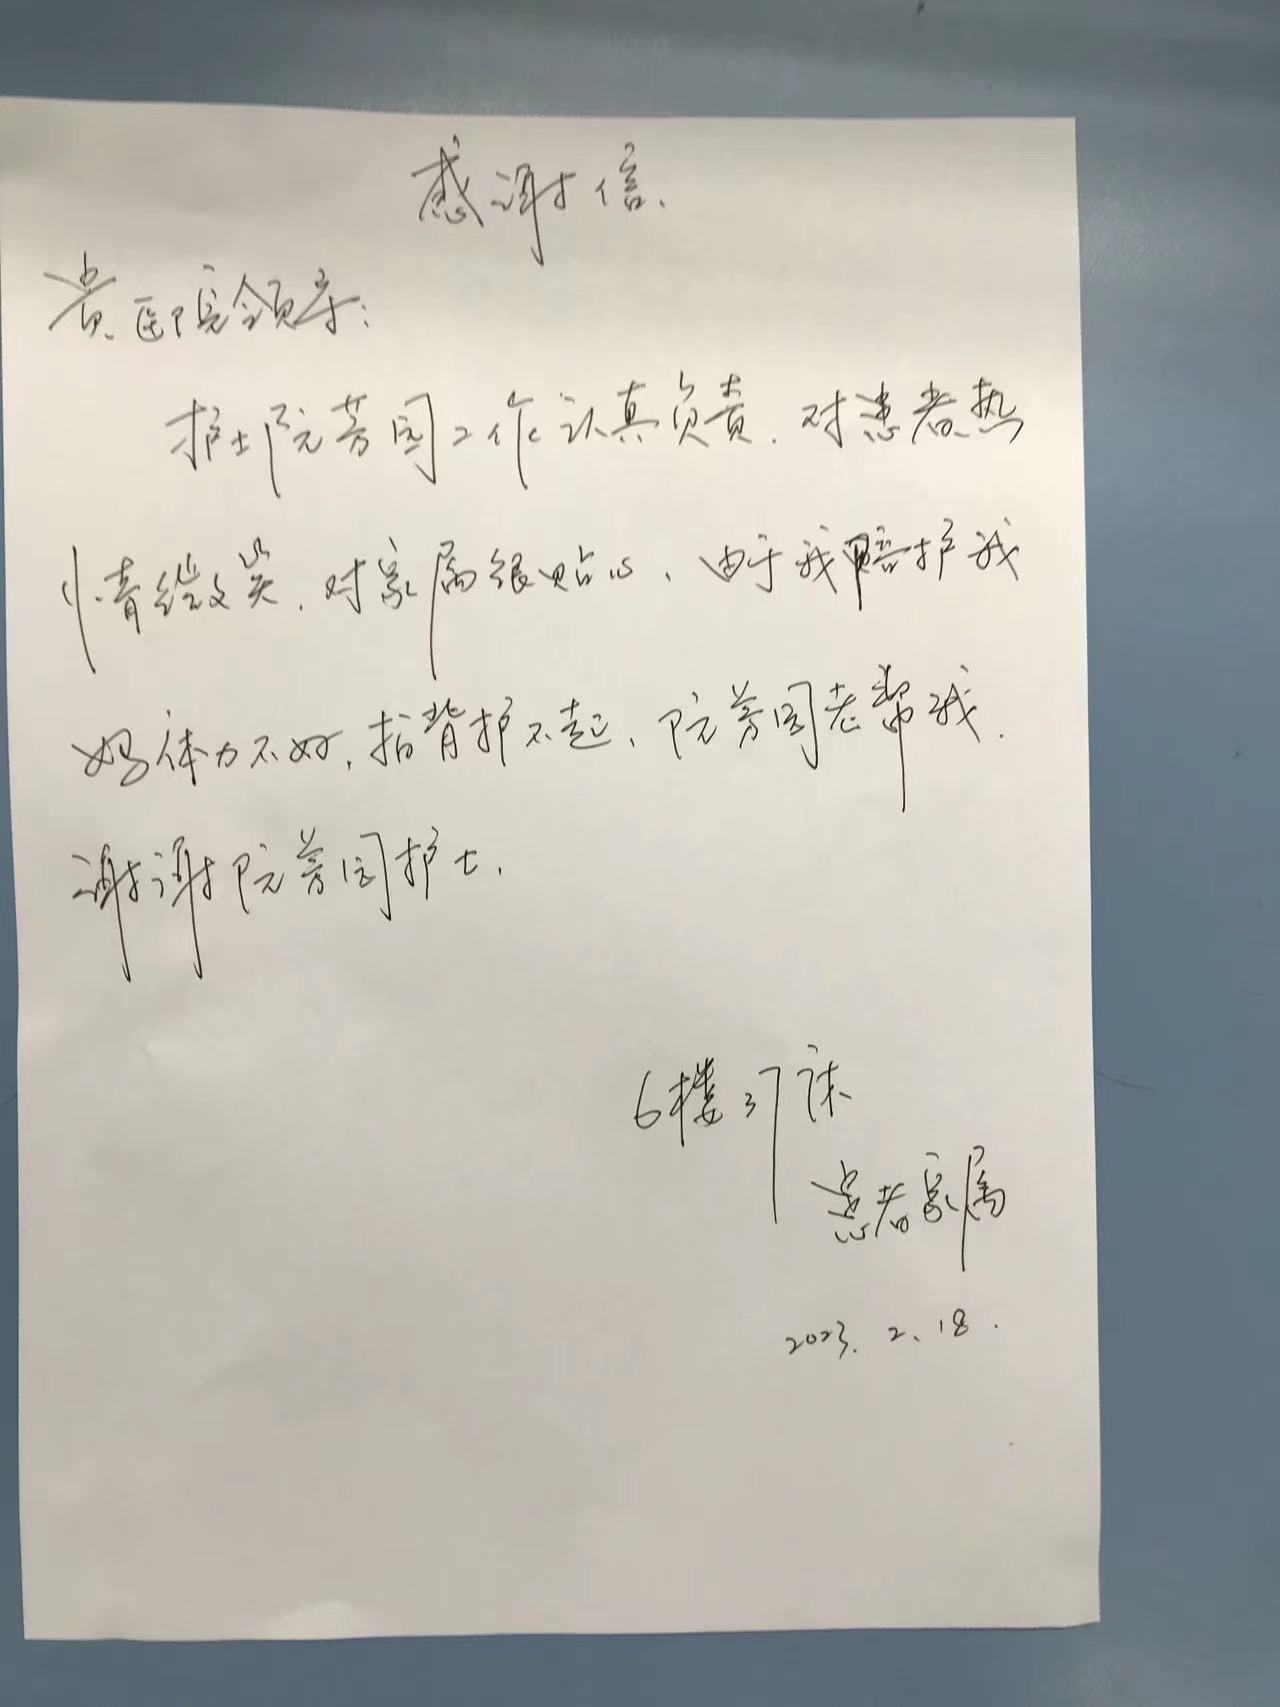 感谢信.
贵医院领导:
护士阮芳园工作认真负责.对患者热
情微笑.对家属很贴心、由于我赔护我
妈体力不好,拍背护不起、阮芳园老帮我.
谢谢阮芳园护士.
6楼37床
患者家属
2023.2.18.